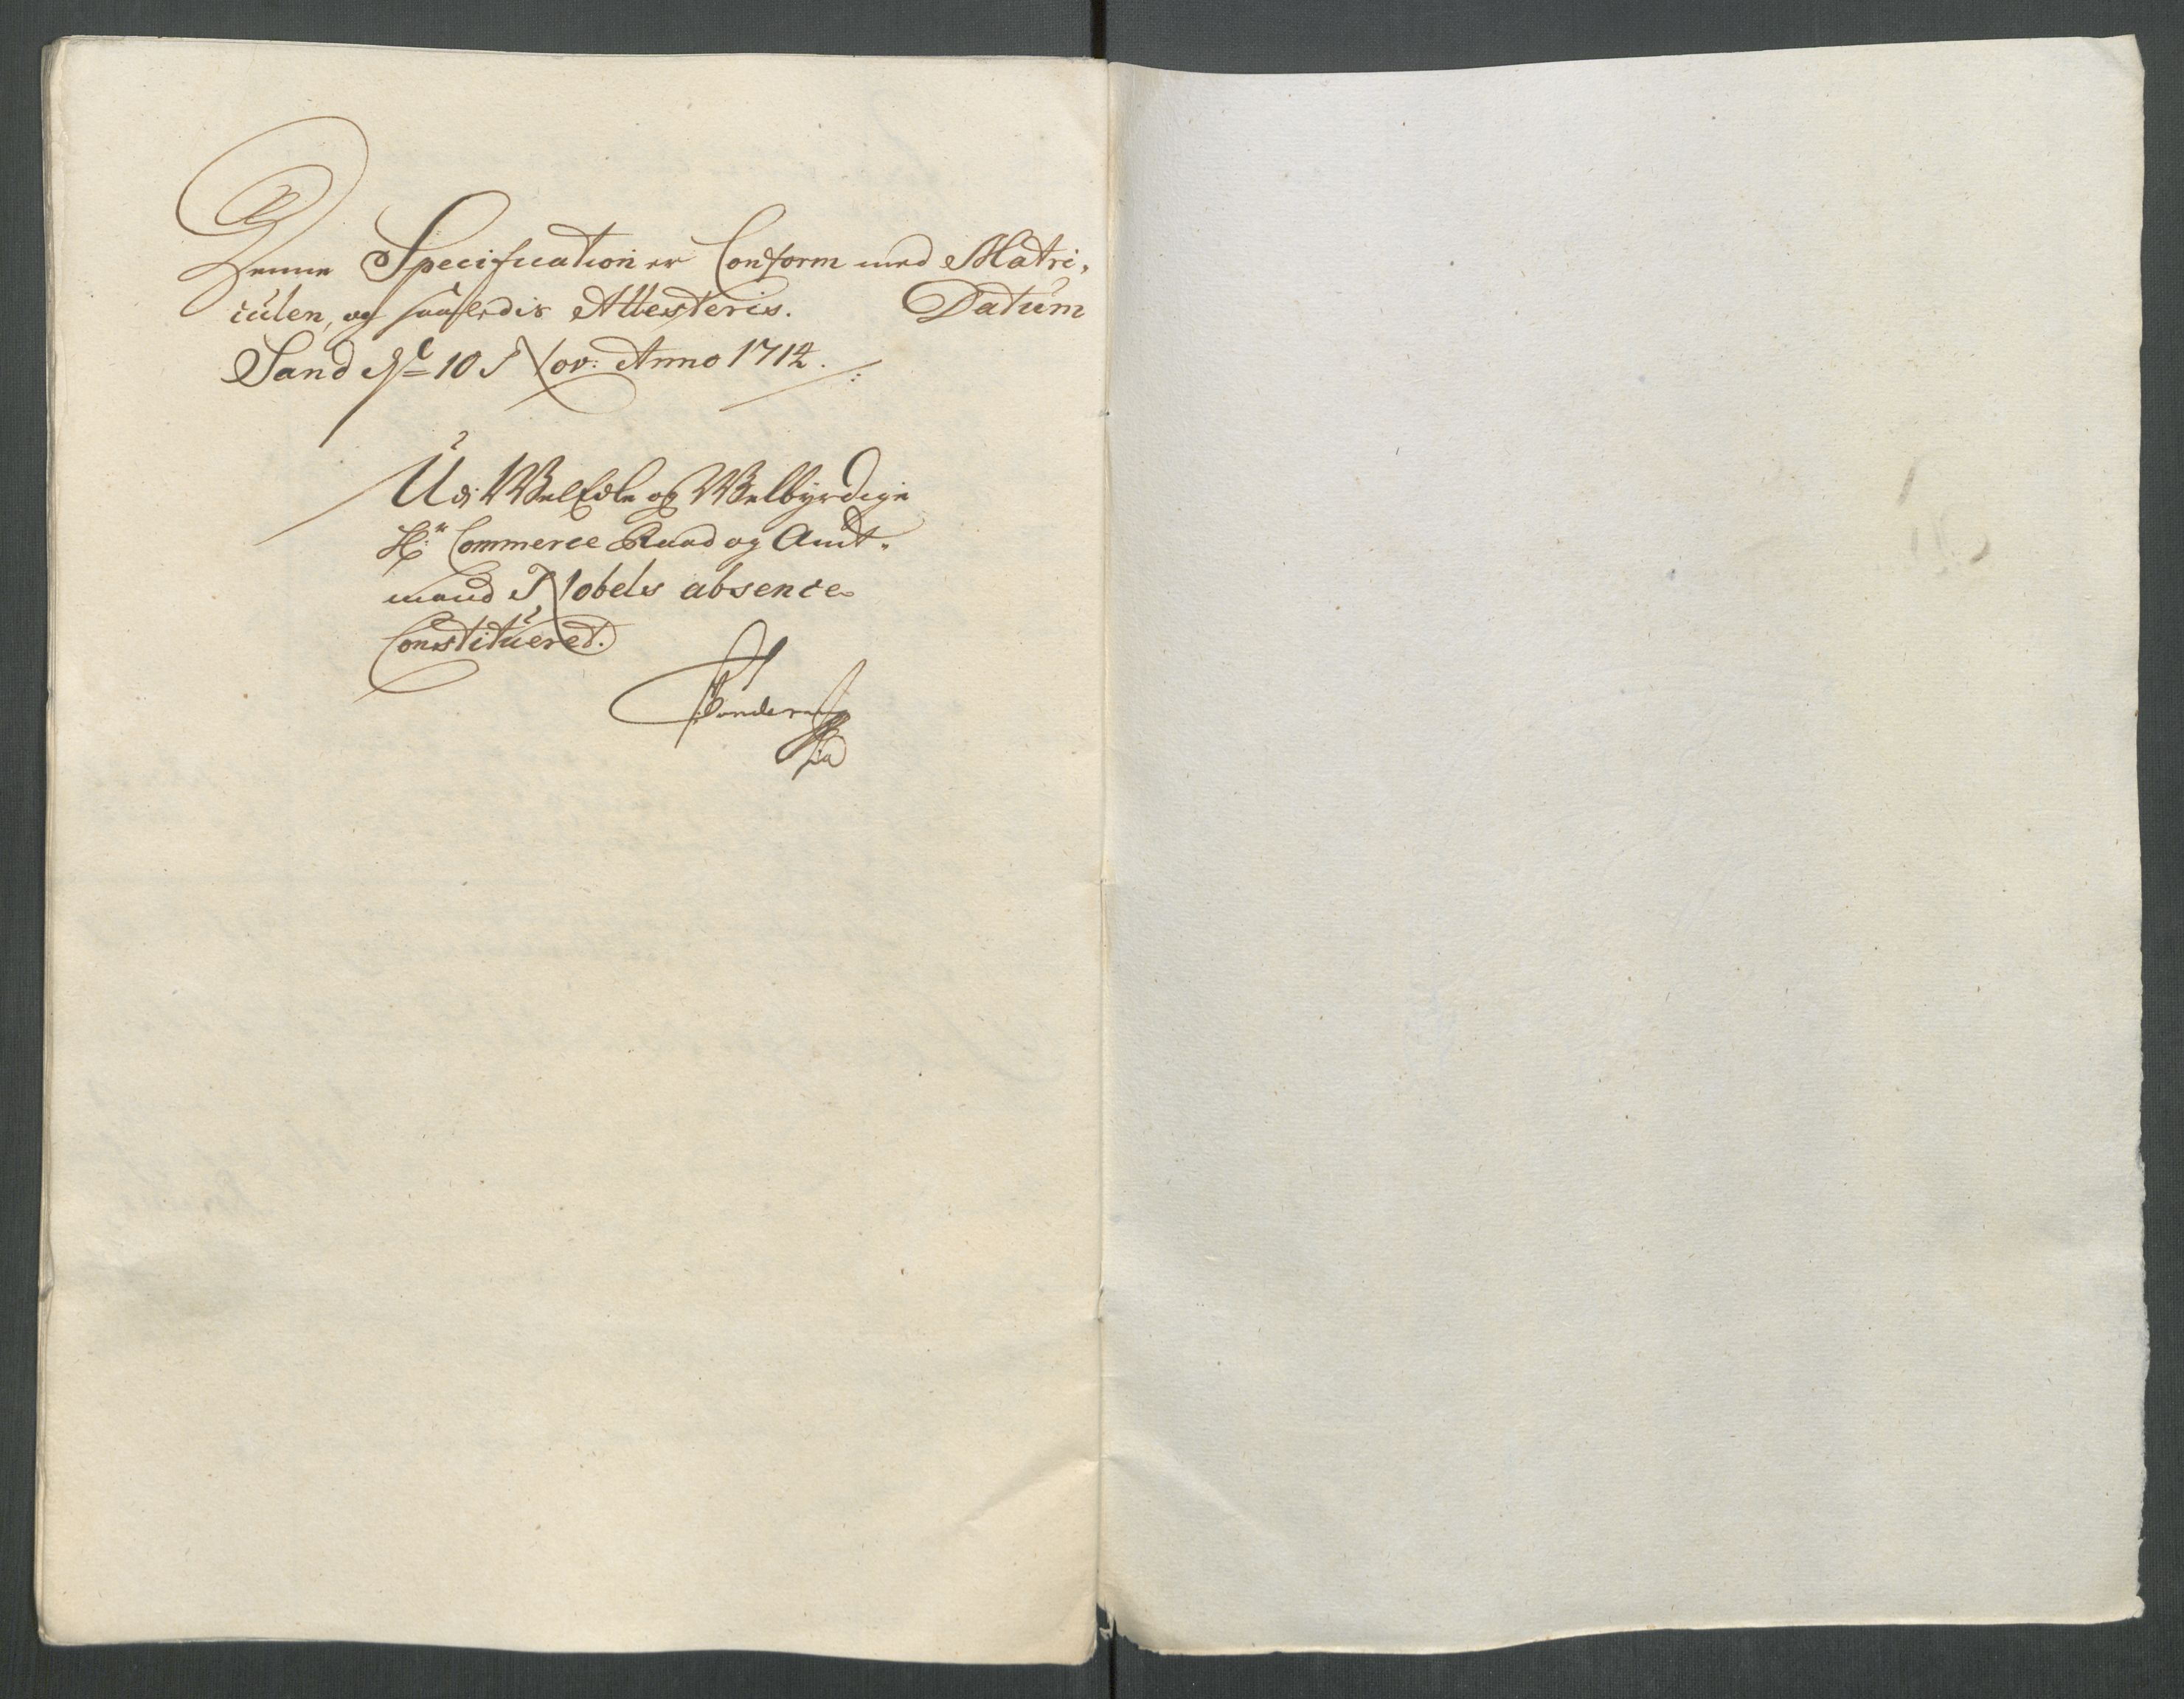 Denne Specification er Conform med Matri,
culen, og saaledis Attesteris. Datum
Sand d: 10 Nov: Anno 1714.
Udi WelEdle og Welbyrdige
Hr: Commerce Raad og Amt,
mand Nobels absence
Constitueret.